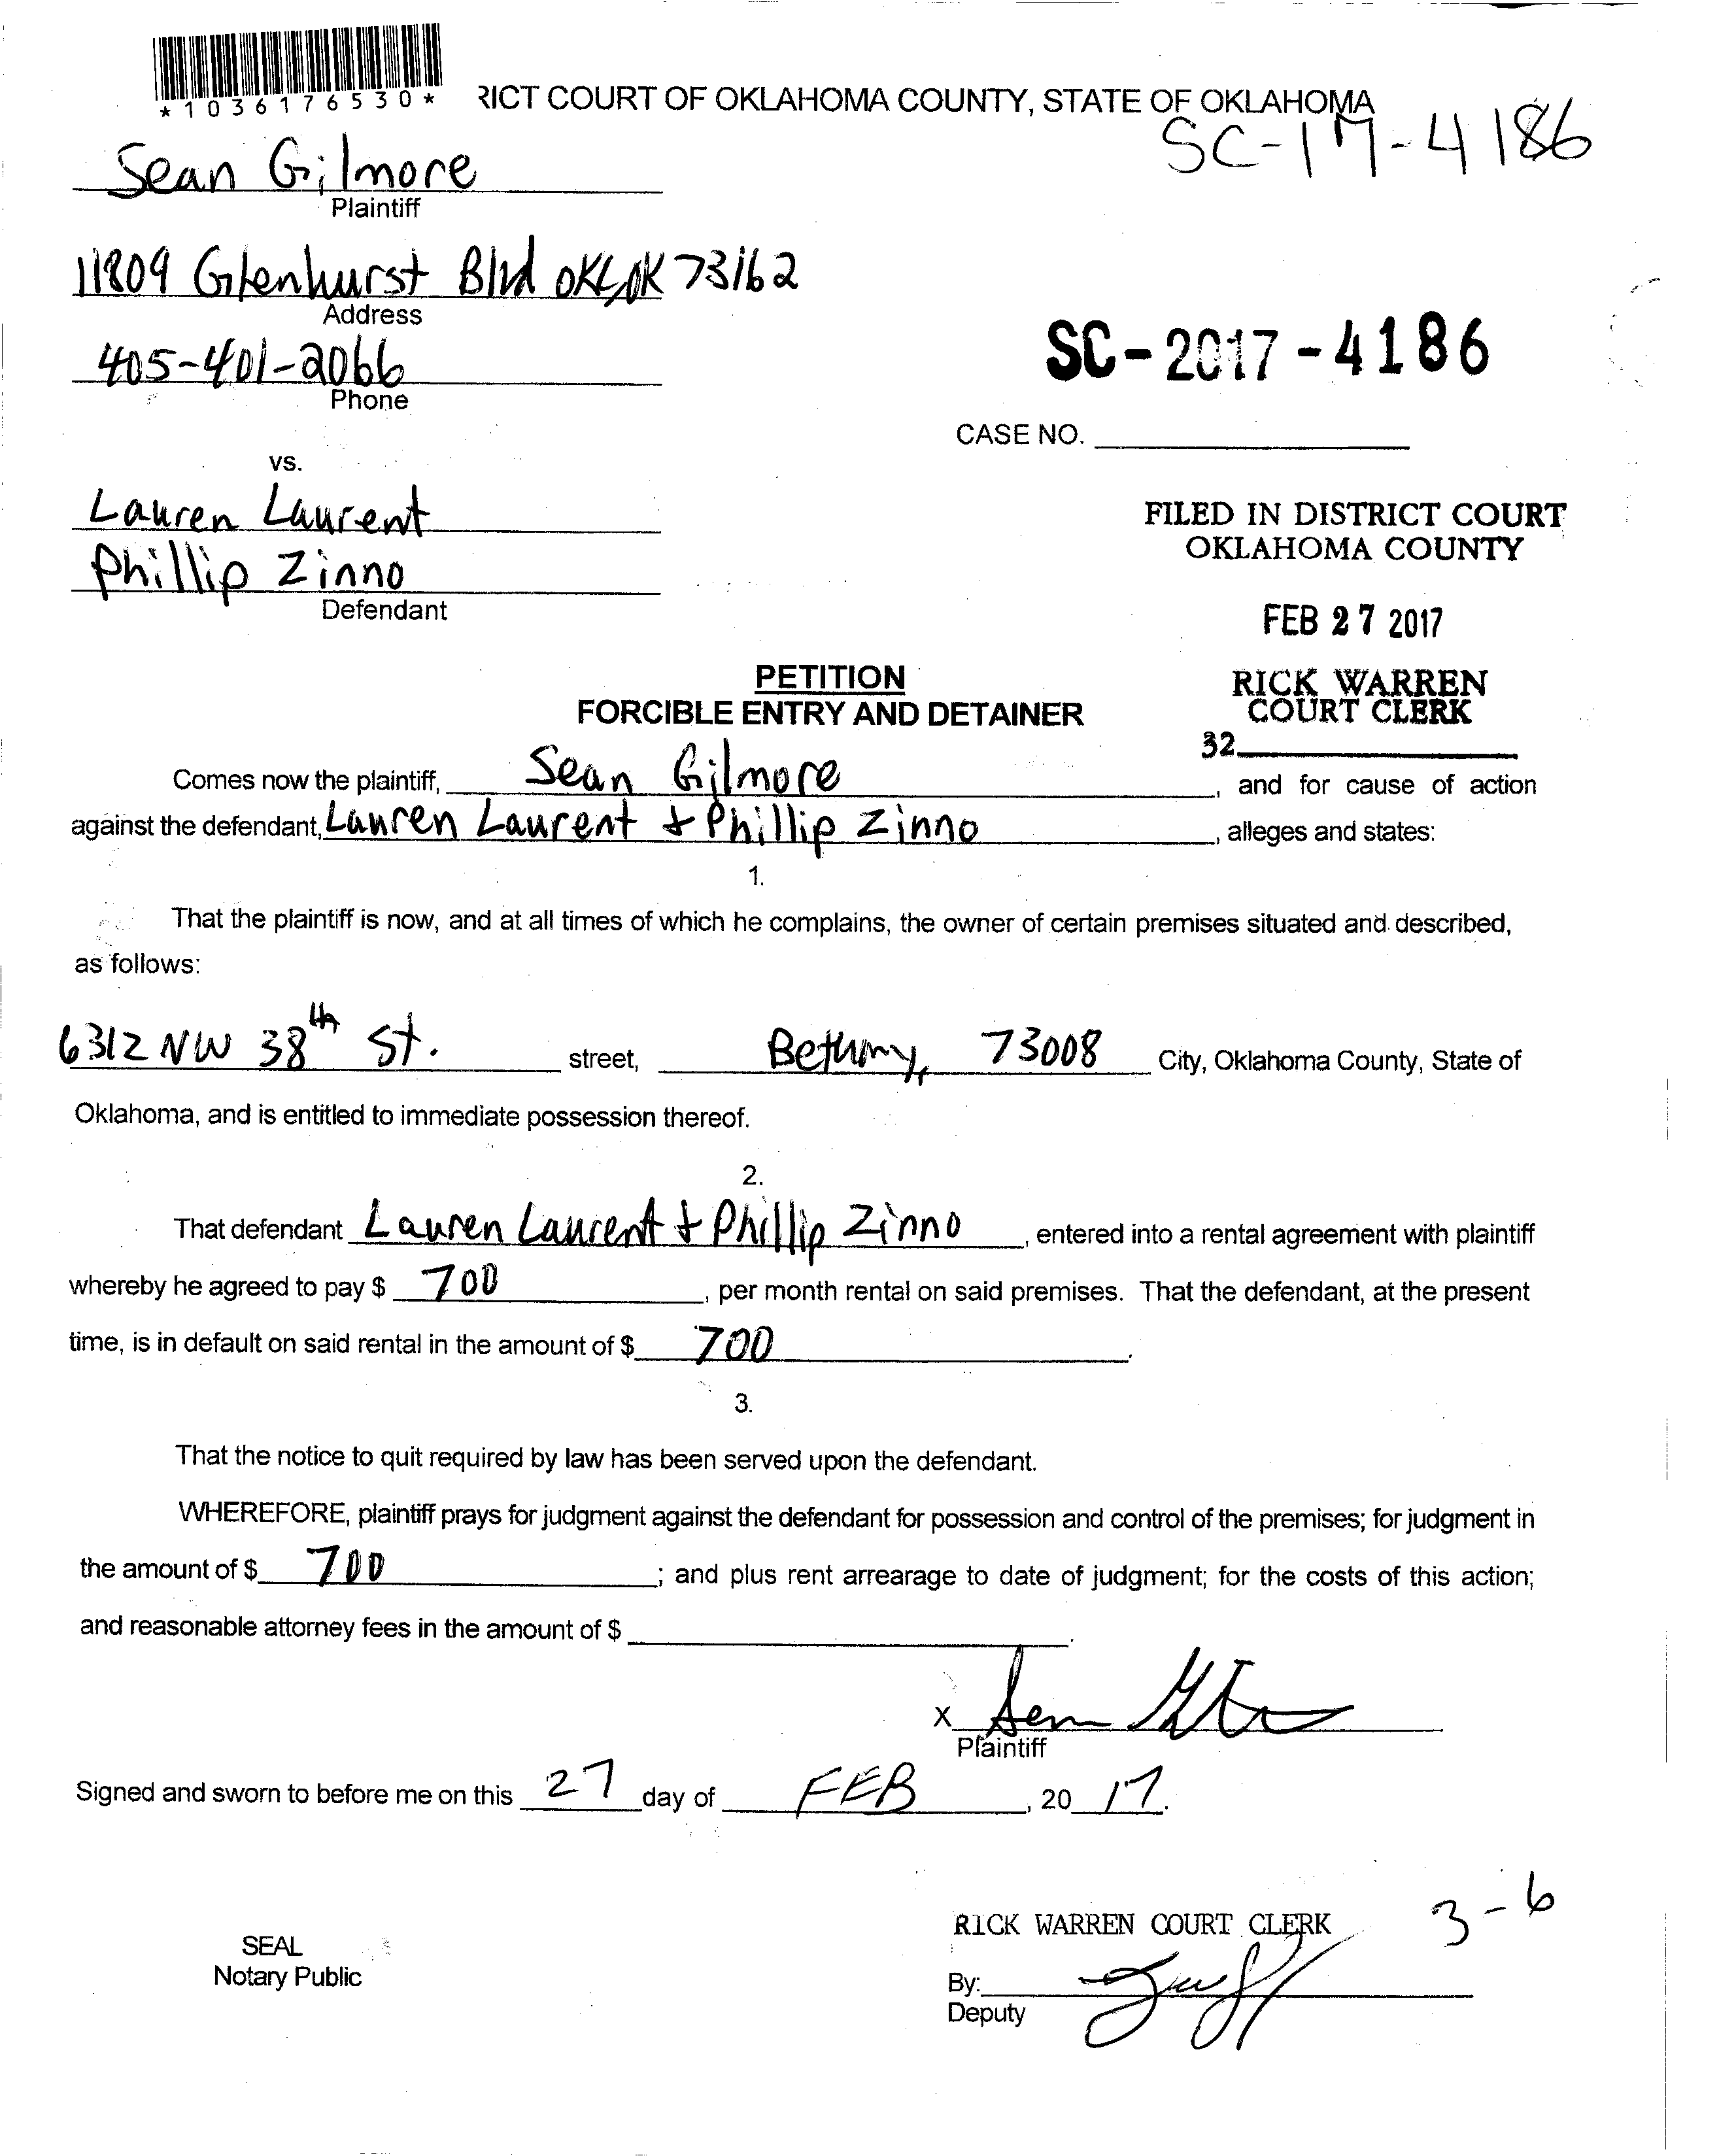 *1036176530*
RICT COURT OF OKLAHOMA COUNTY, STATE OF OKLAHOMA
SC-17-4186
Sean Gilmore
Plaintiff
11809 Glenhurst Blvd OKC, OK 73162
Address
405-401-2066
Phone
SC-2017-4186
CASE NO.
vs.
Lauren Laurent
Phillip Zinno
Defendant
FILED IN DISTRICT COURT
OKLAHOMA COUNTY
FEB 27 2017
RICK WARREN
COURT CLERK
32
PETITION
FORCIBLE ENTRY AND DETAINER
Comes now the plaintiff, Sean Gilmore, and for cause of action
against the defendant, Lauren Laurent + Phillip Zinno, alleges and states:
1.
That the plaintiff is now, and at all times of which he complains, the owner of certain premises situated and described,
as follows:
6312 NW 38th St. street, Bethany, 73008 City, Oklahoma County, State of
Oklahoma, and is entitled to immediate possession thereof.
2.
That defendant Lauren Laurent + Phillip Zinno, entered into a rental agreement with plaintiff
whereby he agreed to pay $ 700, per month rental on said premises. That the defendant, at the present
time, is in default on said rental in the amount of $ 700.
3.
That the notice to quit required by law has been served upon the defendant.
WHEREFORE, plaintiff prays for judgment against the defendant for possession and control of the premises; for judgment in
the amount of $ 700; and plus rent arrearage to date of judgment; for the costs of this action;
and reasonable attorney fees in the amount of $ .
X
Plaintiff
Signed and sworn to before me on this 27 day of FEB, 20 17.
RICK WARREN COURT CLERK
3-6
SEAL
Notary Public
By:
Deputy